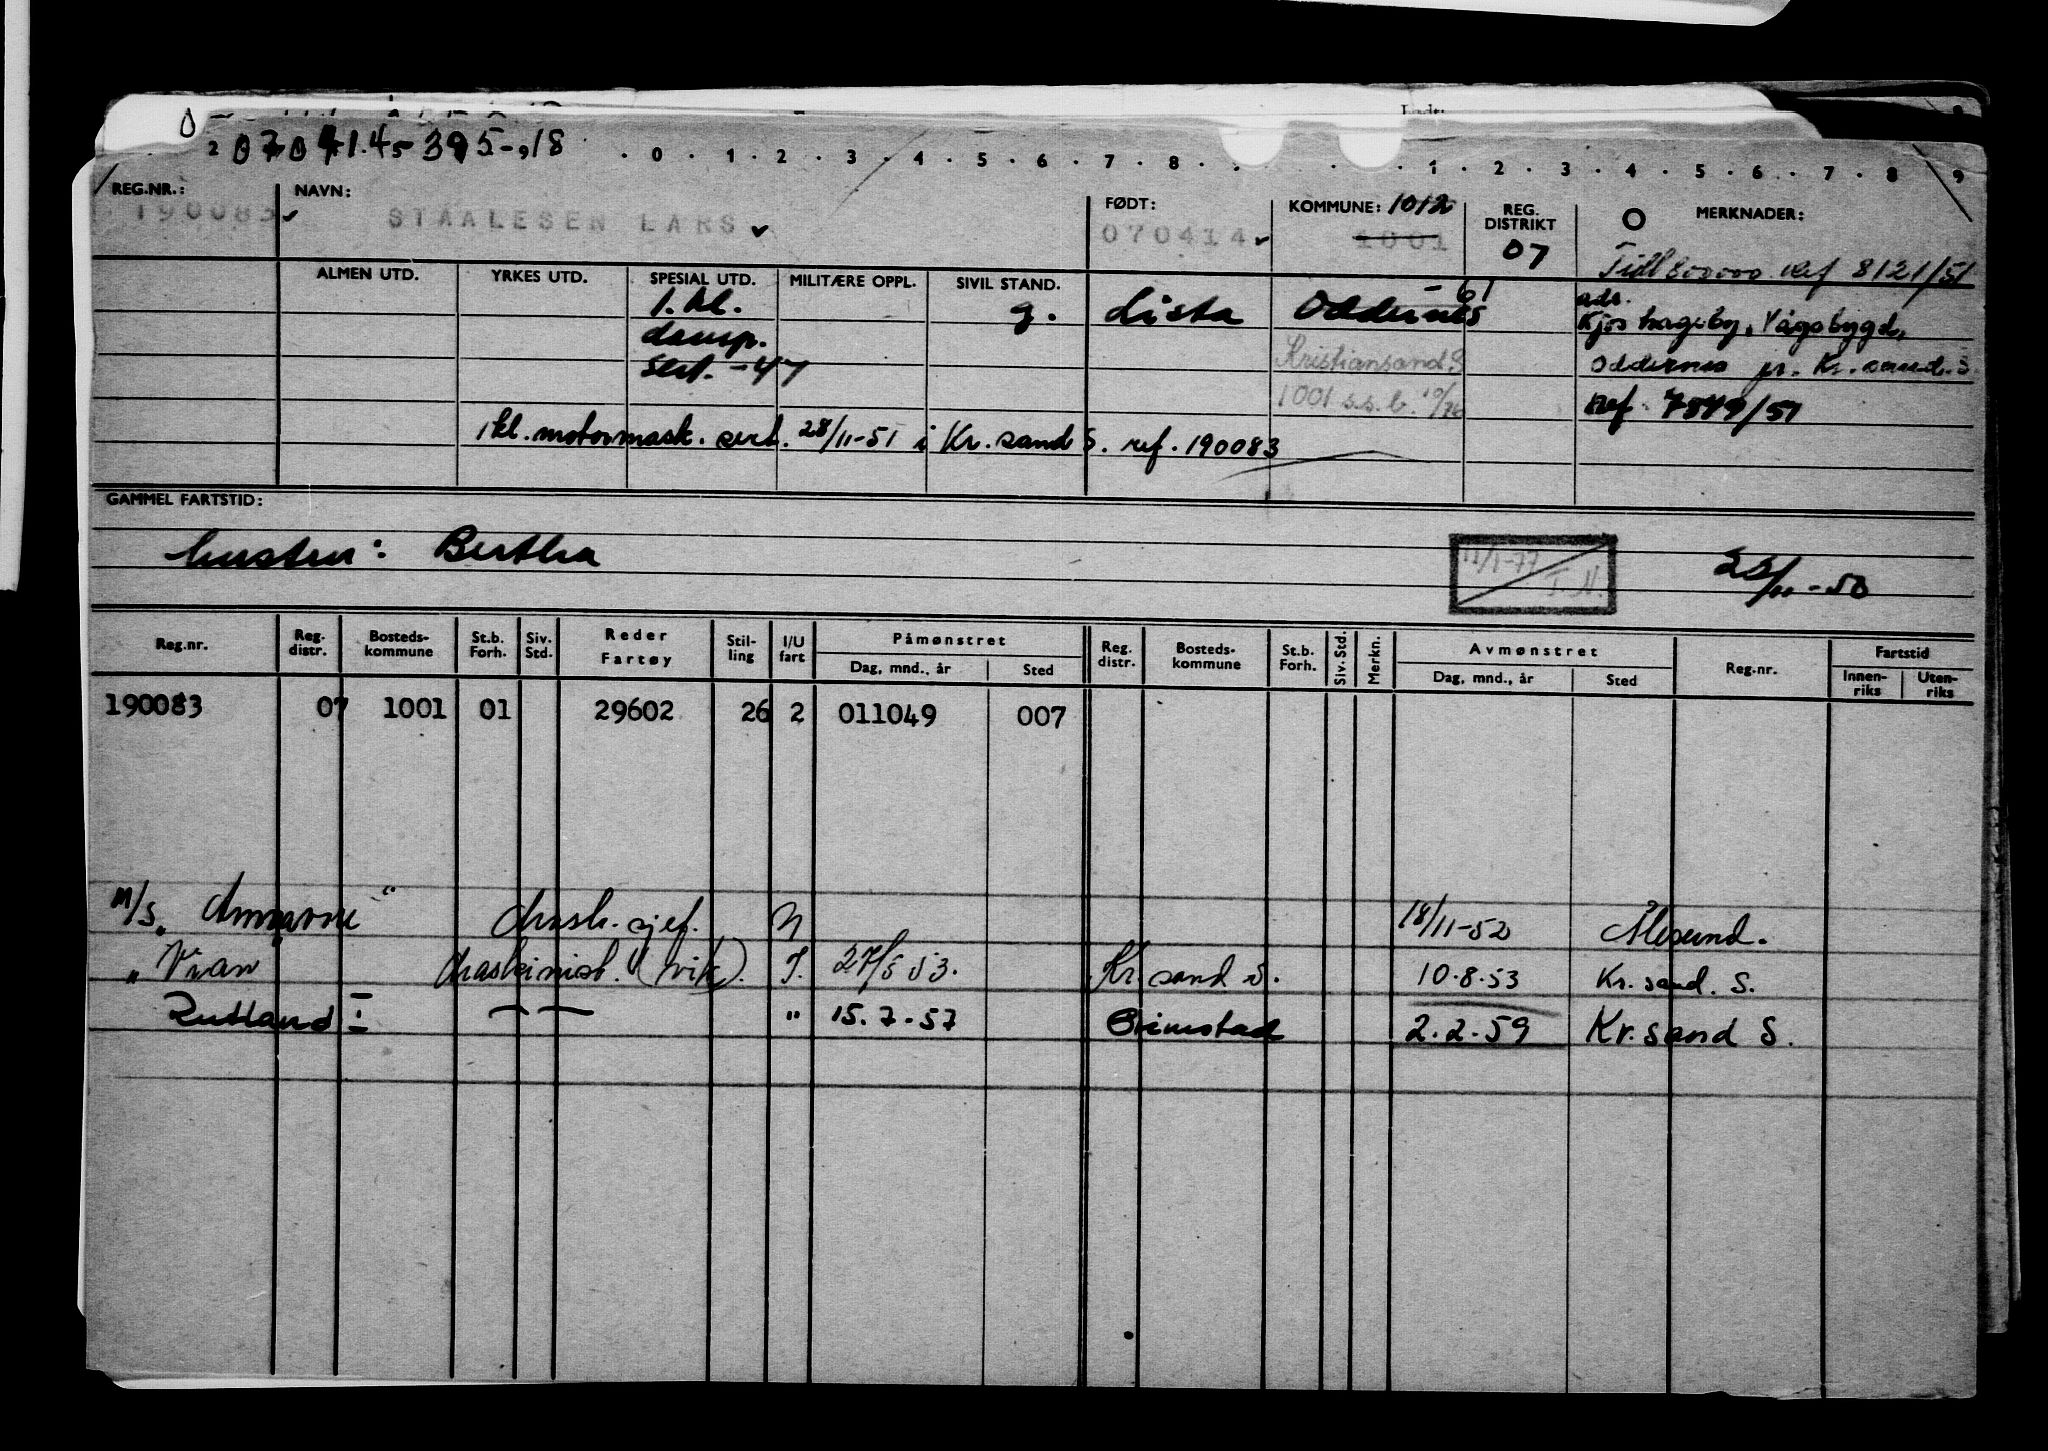 070414 395-18
2 . 0 . 1 . 2 . 3 . 4 . 5 . 6 . 7 . 8 . . . . 1 . 2 . 3 . 4 . 5 . 6 . 7 . 8 . 9
REG.NR.: NAVN: FØDT: KOMMUNE: 1012 REG. DISTRIKT MERKNADER:
190083 STAALESEN LARS 070414 1001 07
Ref 8121/51
ALMEN UTD. YRKES UTD. SPESIAL UTD. MILITÆRE OPPL. SIVIL STAND.
1. kl. g. Lista Oddernes -61 adr. Kjos hageby, Vågsbygd,
damp. Kristiansand S Oddernes pr. Kr.sand. S
sert. -47 1001 s.s.b. Ref. 7879/51
1 kl. motormask. sert. 28/11-51 i Kr. sand S. ref. 190083
GAMMEL FARTSTID:
hustru: Bertha 11/1-77 T.N. 23/11-50
Reg.nr. Reg. distr. Bosteds-kommune St.b. Forh. Siv. Std. Reder Fartøy Stil-ling I/U fart Påmønstret Reg. distr. Bosteds-kommune St.b. Forh. Siv. Std. Merkn. Avmønstret Reg.nr. Fartstid
Dag, mnd., år Sted Dag, mnd., år Sted Innen-riks Uten-riks
190083 07 1001 01 29602 26 2 011049 007
M/S " Mask. sjef. U 18/11-52 Ålesund.
" Vivan Maskinist. (vik). I. 27/5 53. Kr.sand S. 10.8.53 Kr. sand. S.
Rutland I — — " 15.7.57 Grimstad 2.2.59 Kr.sand S.